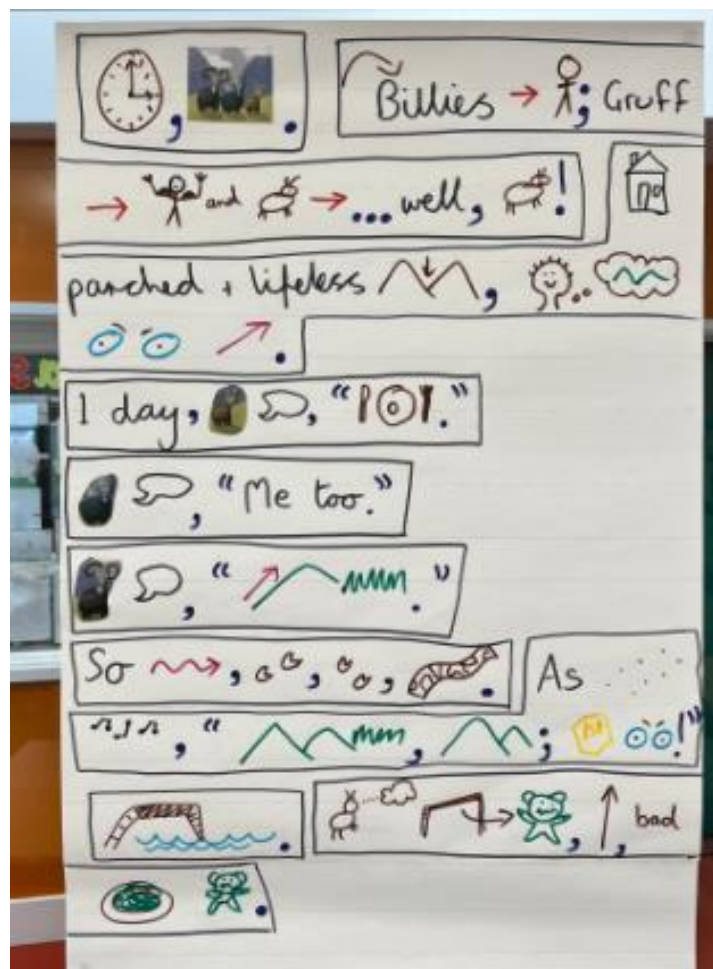 , .
Billies → ; Gruff
→ and → ... well, !
parched + lifeless ,
.
1 day, , " ."
, "Me too."
, " ."
So , , , .
As
, " , ; !"
.
, , bad
.